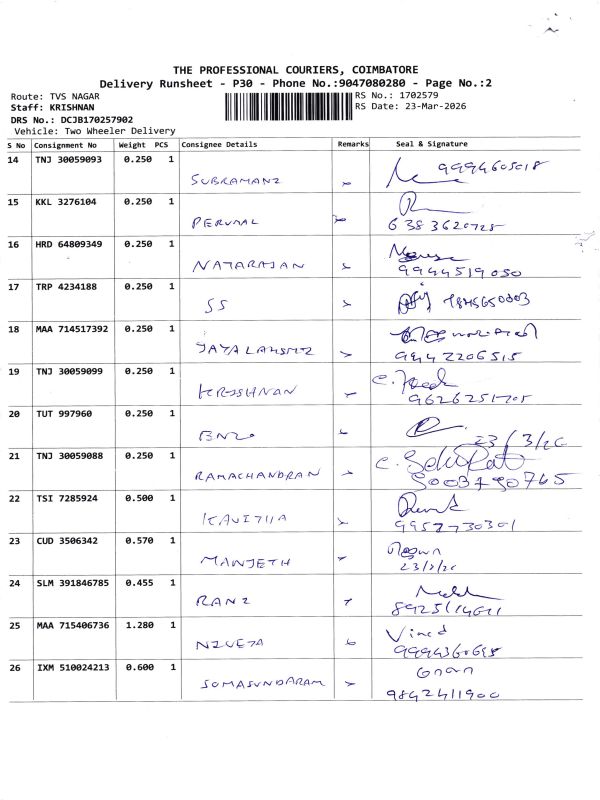 THE PROFESSIONAL COURIERS, COIMBATORE
Delivery Runsheet - P30 - Phone No.:9047080280 - Page No.:2
Route: TVS NAGAR
RS No.: 1702579
Staff: KRISHNAN
RS Date: 23-Mar-2026
DRS No.: DCJB170257902
Vehicle: Two Wheeler Delivery
S No Consignment No Weight PCS Consignee Details Remarks Seal & Signature
14 TNJ 30059093 0.250 1
SUBRAMANI
15 KKL 3276104 0.250 1
PERUMAL
16 HRD 64809349 0.250 1
NATARAJAN 9944519050
17 TRP 4234188 0.250 1
SS
18 MAA 714517392 0.250 1
JAYALAKSMI 9442206515
19 TNJ 30059099 0.250 1
KRISHNAN
20 TUT 997960 0.250 1
23/3/26
21 TNJ 30059088 0.250 1
RAMACHANDRAN
22 TSI 7285924 0.500 1
KAVITHA 9952730301
23 CUD 3506342 0.570 1
MANJETH
24 SLM 391846785 0.455 1
RANI
25 MAA 715406736 1.280 1
Vinod
NIVETA
26 IXM 510024213 0.600 1
Gnan
SOMASUNDARAM 9842411900